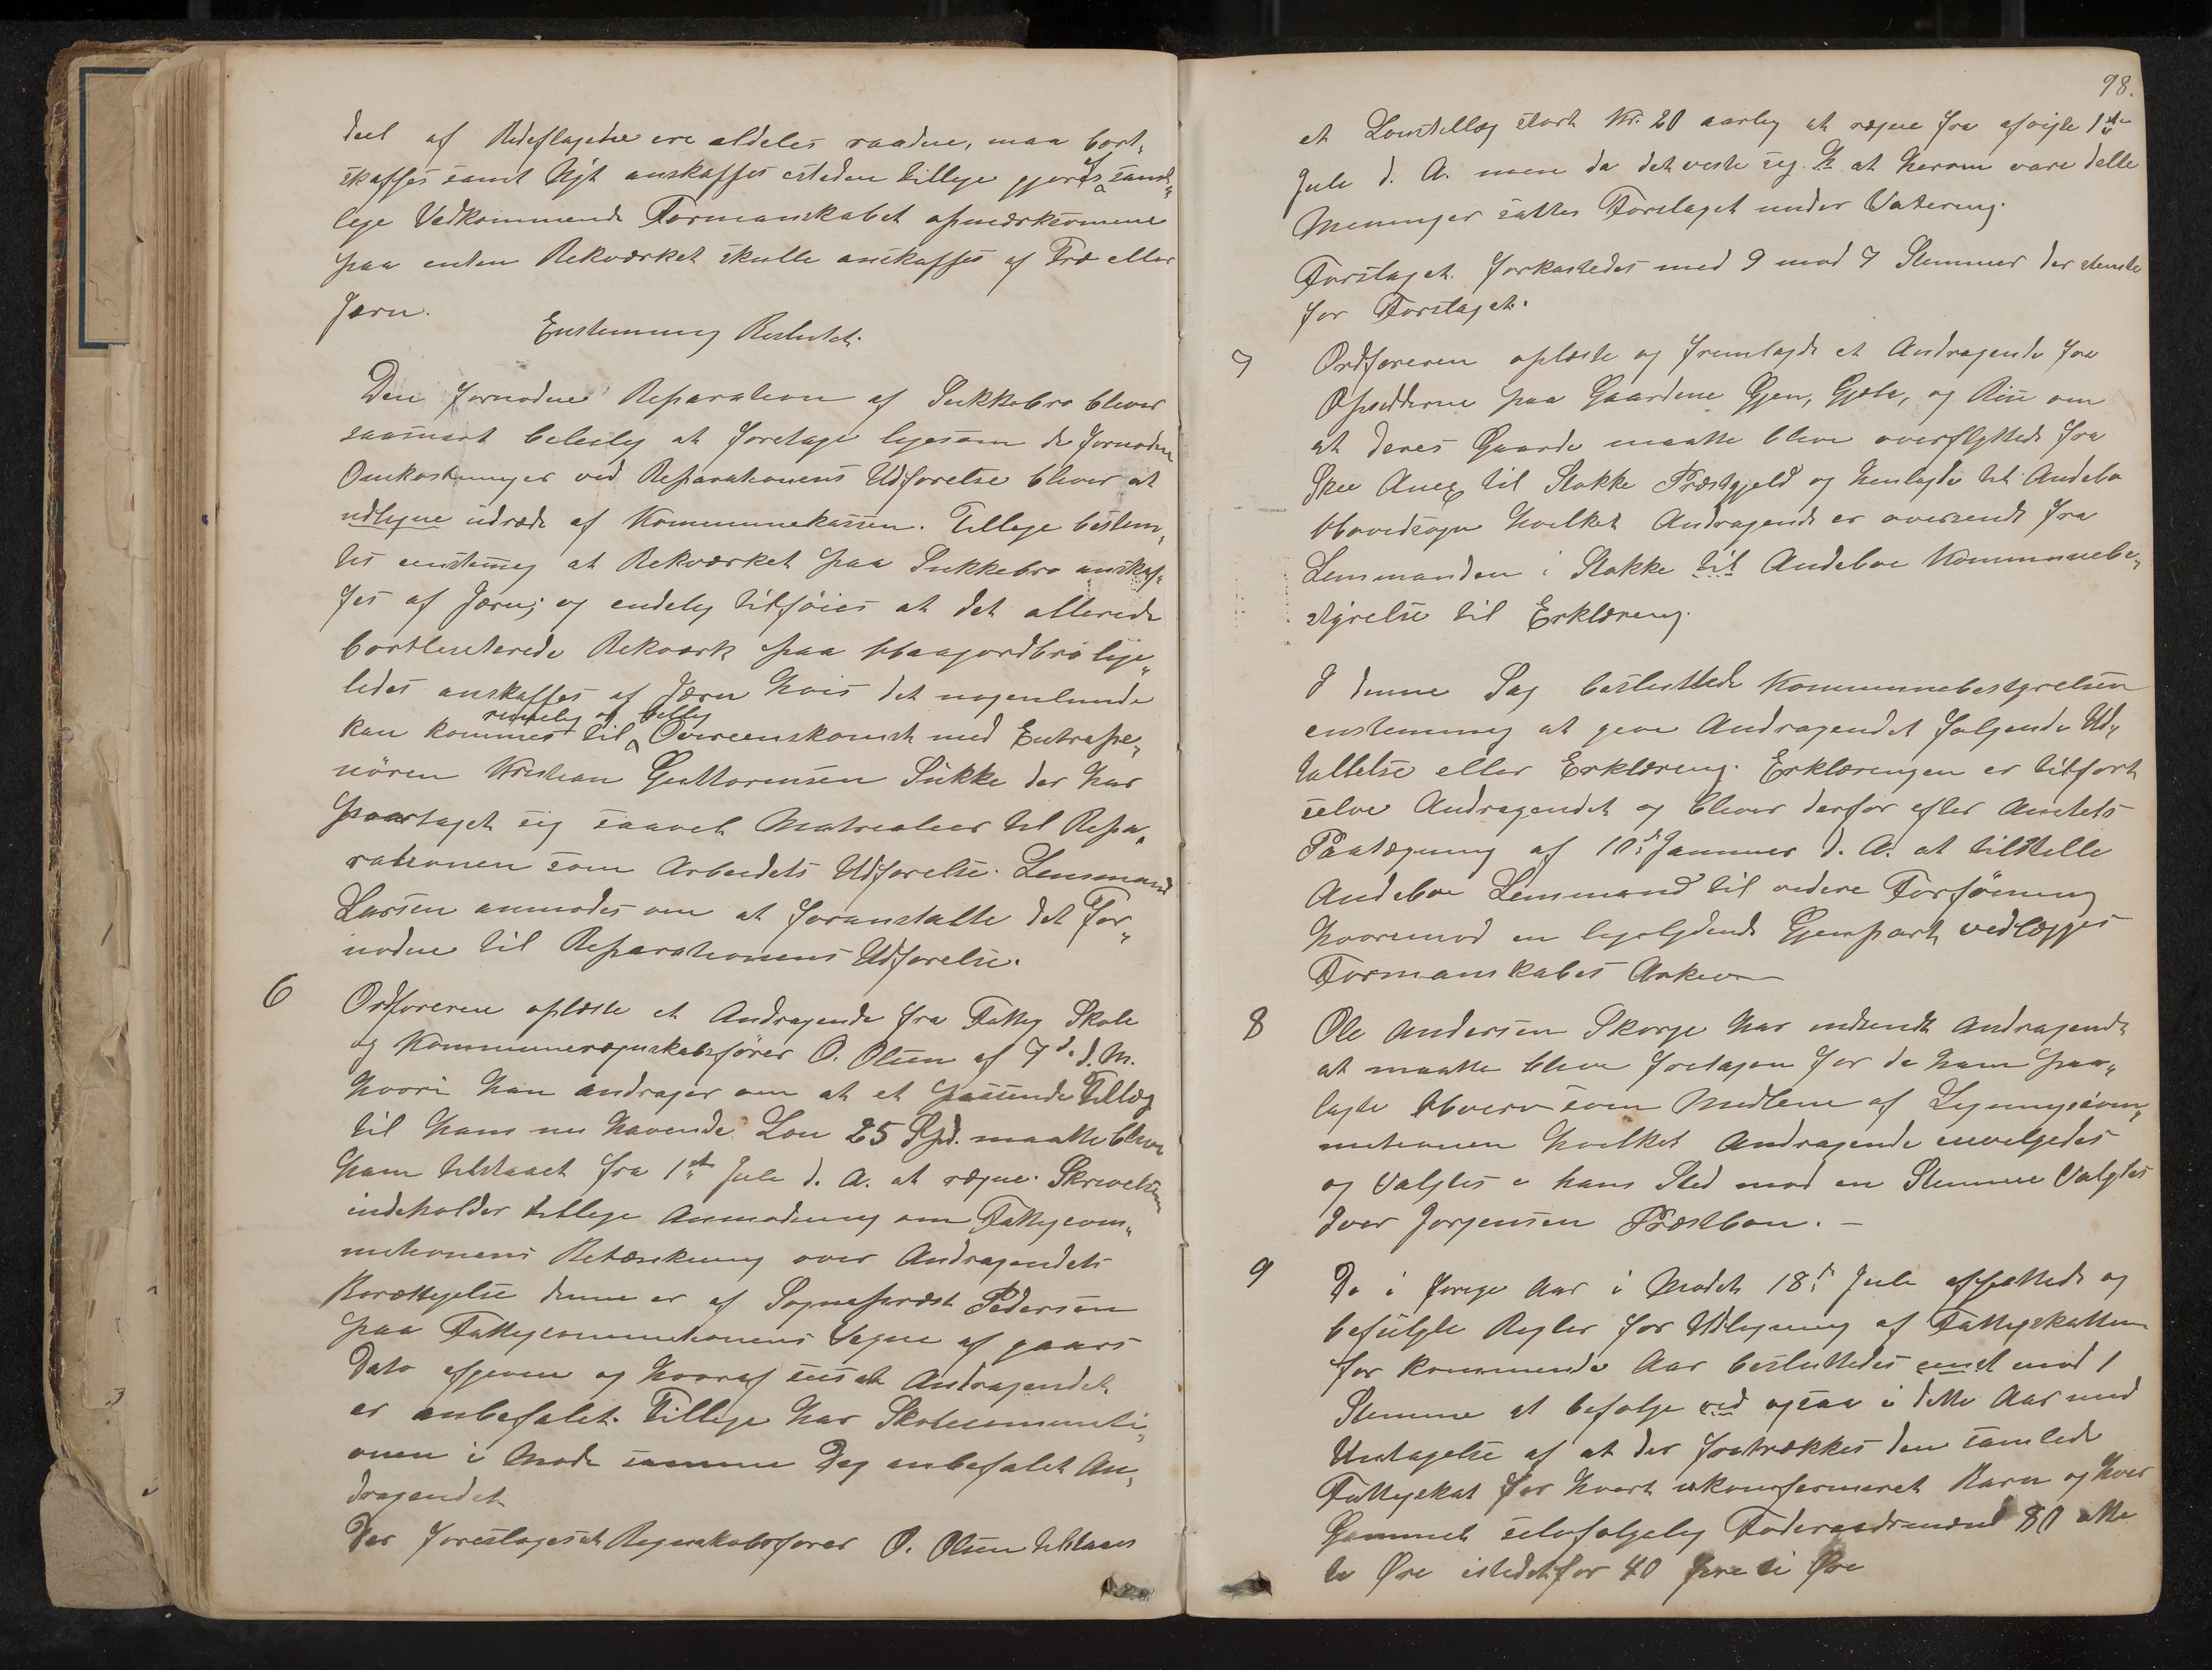 deel af Redeflagene ere aldeles raadne, maa bort„
skaffes samt Nyt anskaffes isteden tillige gjøres af samt„
lige Vedkommende Formanskabet opmærksomme
paa enten Rekværket skulle anskaffes af Træ eller
Jern.
Enstemmig Besluttet.
Den fornødne Reparation af Sukkebro bliver
saasnart beleilig at foretage ligesom de fornødne
Omkostninger ved Reparationens Udførelse bliver at
udligne udrede af Kommunekassen. Tillige bestem„
tes enstemig at Rekværket paa Sukkebro anskaf„
fes af Jærn; og endelig tilføies at det allerede
bortliciterede Rekværk paa Haagordbro lige„
ledes anskaffes af Jærn hvis det nogenlunde
rimelig og billig
kan kommes til Overeenskomst med Entrepe„
nøren Kristian Guttormsen Sukke der har
paataget sig saavel Matrealier til Repa„
rationen som Arbeidets Udførelse. Lensmand
Larsen anmodes om at foranstalte det For„
nødne til Reparationens Udførelse.
6 Ordføreren oplæste et Andragende fra Fattig Skole
og Kommuneregnskabsfører O. Olsen af 7de d. M.
hvori han andrager om at et passende Tillæg
til hans nu havende Løn 25 Spd. maatte blive
ham tilstaaet fra 1ste Juli d. A. at regne. Skrivelsen
indeholder tillige Anmodning om Fattigcom„
mitionens Betænkning over Andragendets
Berettigelse denne er af Sogneprest Pedersen
paa Fattigcommitionens Vegne af gaars
Dato afgiven og hvoraf sees at Andragendet
er anbefalet. Tillige har Skolecommiti„
onen i Møde samme Dag anbefalet An„
dragendet
Der foreslages at Regnskabsfører O. Olsen tilstaaes
98.
et Lønstillæg stort Kr. 20 aarlig at regne fra afvigte 1ste
Juli d. A. men da det viste sig at herom vare delte
Meninger sattes Forslaget under Votering.
Forslaget forkastedes med 9 mod 7 Stemmer der stemte
for Forslaget.
7 Ordføreren oplæste og fremlagde et Andragende fra
Opsidderne paa Gaardene Gjen, Gjelø, og Riis om
at deres Gaarde maatte blive overflyttede fra
Skee Anex til Stokke Præstgjeld og henlagde til Andebo
Hovedsogn hvilket Andragende er oversendt fra
Lensmanden i Stokke til Andeboe Kommunebe„
styrelse til Erklæring.
I denne Sag besluttede Kommunebestyrelsen
enstemmig at give Andragendet følgende Ud„
tallelse eller Erklæring. Erklæringen er tilført
selve Andragendet og bliver derfor efter Amtets
Paategning af 10de Januar d. A. at tilstille
Andeboe Lensmand til videre Forføining
hvorimod en ligelydende Gjenpart vedlægges
Formanskabets Arkiv
8 Ole Andersen Skorge har indsendt Andragende
at maatte blive fretagen for de ham paa„
lagte Hverv som Medlem af Ligningscom„
mitionen hvilket Andragende innvilgedes
og Valgtes i hans Sted mod en Stemme Valgtes
Iver Jørgensen Præstbøen. —
9 De i forige Aar i Mødet 18de Juli affattede og
befulgte Regler for Udligning af Fattigskatten
for kommende Aar besluttedes eenst mod 1
Stemme at befølge ved ogsaa i dette Aar med
Untagelse af at der fratrækkes den samlede
Fattigskat for hvert ukonfirmeret Barn og hver
Gammel selvfølgelig Føderaadsmænd 80 otte
ti Øre istedetfor 40 fireti Øre